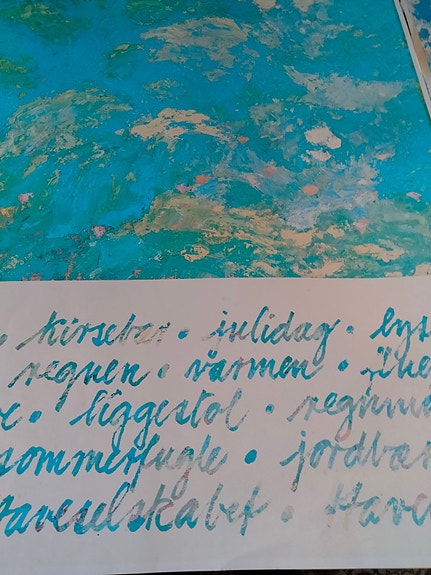 • kirsebær • julidag • lys
regnen • varmen •
• liggestol •
sommerfugle • jordbær
Haveselskabet • Have